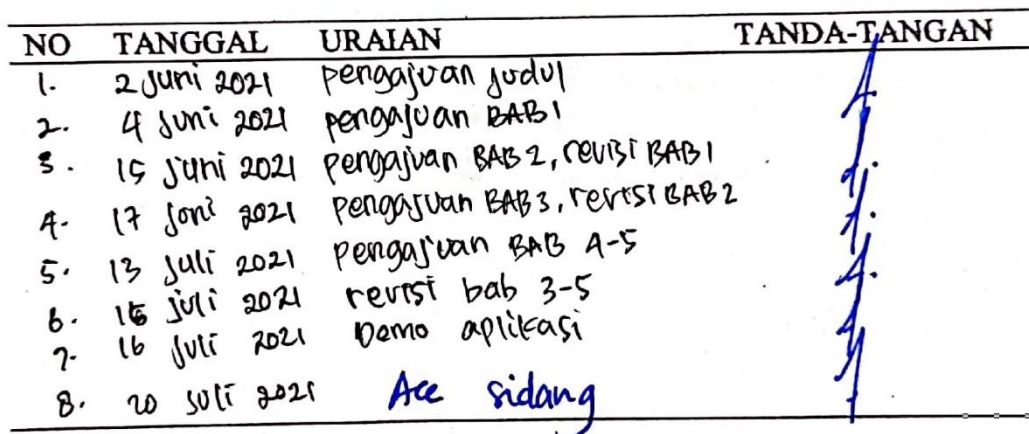 NO TANGGAL URAIAN TANDA-TANGAN
1. 2 Juni 2021 pengajuan judul
2. 4 Juni 2021 pengajuan BAB 1
3. 15 Juni 2021 pengajuan BAB 2, revisi BAB 1
4. 17 Juni 2021 pengajuan BAB 3, revisi BAB 2
5. 13 Juli 2021 pengajuan BAB 4-5
6. 15 juli 2021 revisi bab 3-5
7. 16 Juli 2021 Demo aplikasi
8. 20 Juli 2021 Acc sidang